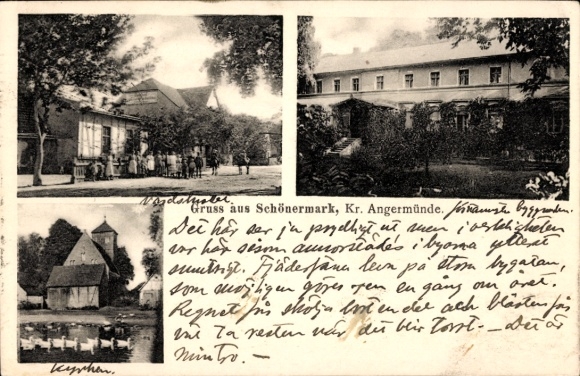 Gruss aus Schönermark, Kr. Angermünde.
Det här ser ju prydligt ut men i verkligheten
var här såsom annorstädes i byarna ytterst
smutsigt. Fjäderfäna leva på stora bygatan,
som möjligen göres ren en gång om året.
Regnet får skölja bort en del och blåsten får
väl ta resten när det blir torrt. — Det är
min tro. —
Kyrkan.